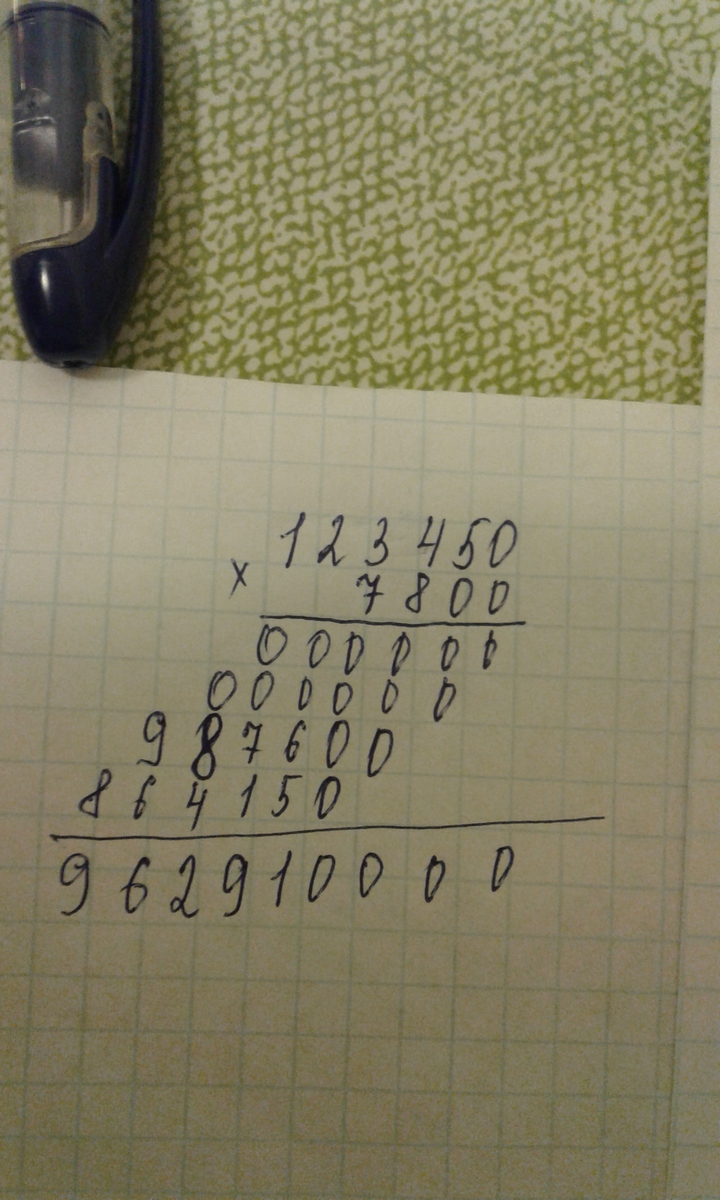 123450
×
7800
000000
000000
987600
864150
962910000